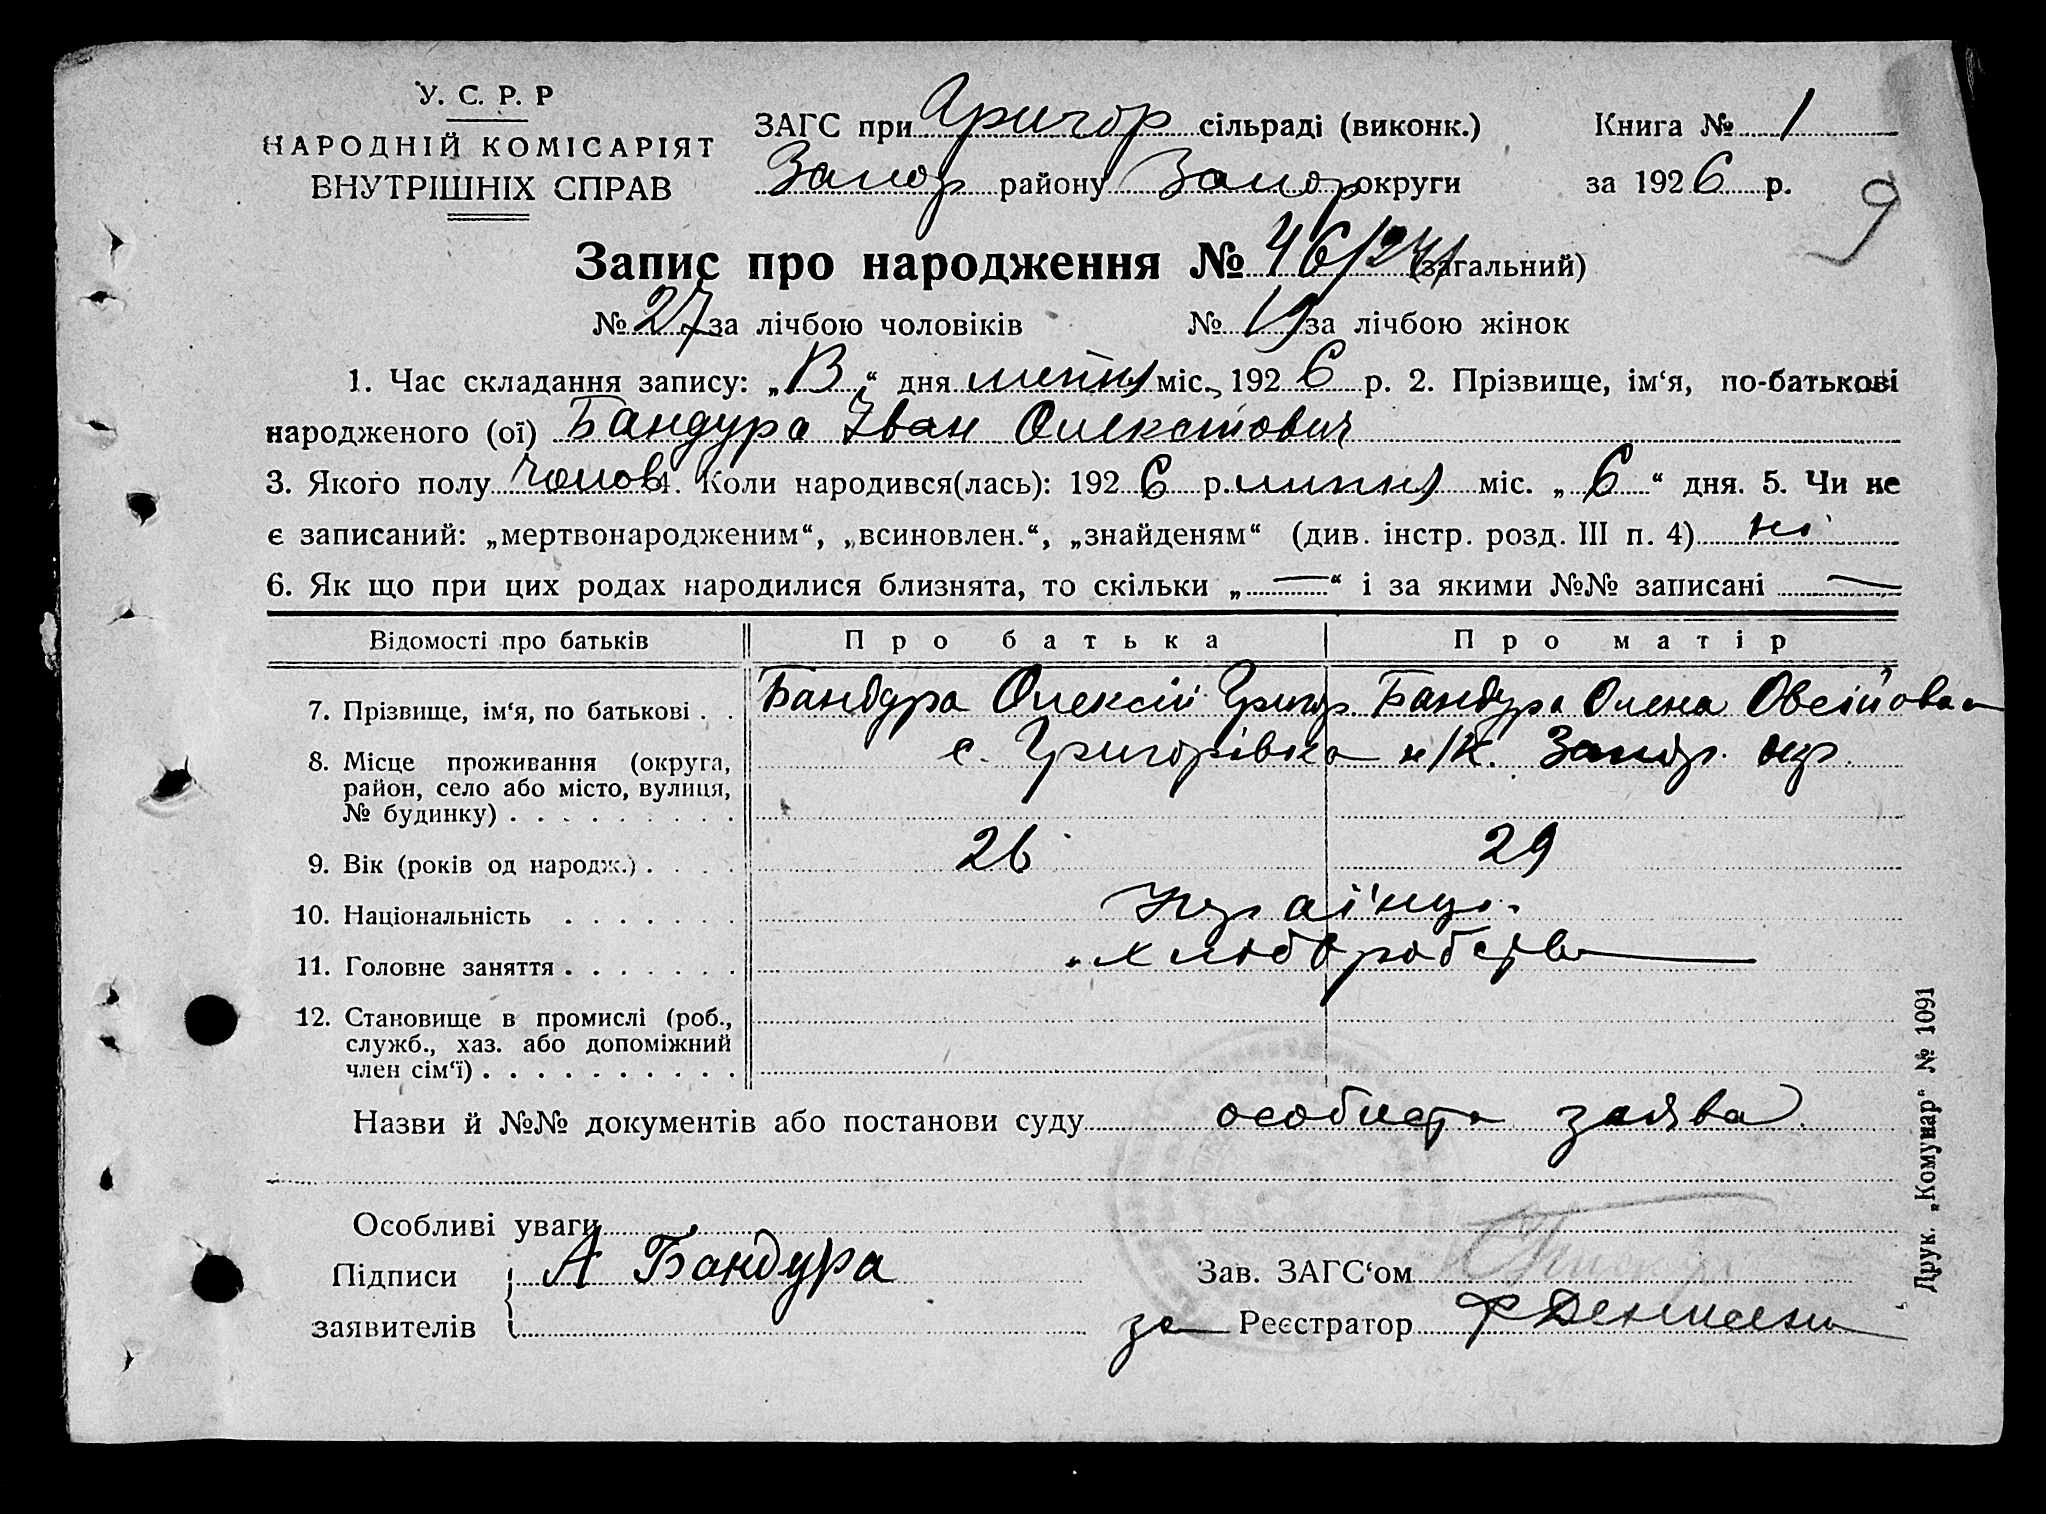 У. С. Р. Р
НАРОДНІЙ КОМІСАРІЯТ
ВНУТРІШНІХ СПРАВ
ЗАГС при Григор сільраді (виконк.)
Запор району Запор округи
Книга № 1
за 1926 р.
9
Запис про народження № 46/ (загальний)
№ 27 за лічбою чоловіків № 19 за лічбою жінок
1. Час складання запису: „ “ дня липня міс., 1926 р. 2. Прізвище, ім‘я, по-батькові
народженого (ої) Бандура Іван Олексійович
3. Якого полу чолов 4. Коли народився(лась): 1926 р. липня міс. „6“ дня. 5. Чи не
є записаний: „мертвонародженим“, „всиновлен.“, „знайденям“ (див. інстр. розд. III п. 4) ні
6. Як що при цих родах народилися близнята, то скільки „—“ і за якими №№ записані —
Відомості про батьків Про батька Про матір
7. Прізвище, ім‘я, по батькові . . Бандура Олексій Григор. Бандура Олена Овсійовна
8. Місце проживання (округа, район, село або місто, вулиця, № будинку) . . . . . . . . . с. Григорівка н/К. Запор. окр.
9. Вік (років од народж.) . . . . 26 29
10. Національність . . . . . . . Українці.
11. Головне заняття . . . . . . . хліборобство
12. Становище в промислі (роб., служб., хаз. або допоміжний член сім‘ї) . . . . . . . . . .
Назви й №№ документів або постанови суду особиста заява
Особливі уваги
Підписи А Бандура Зав. ЗАГС‘ом
заявителів за Реєстратор
Друк. „Комунар“ № 1091